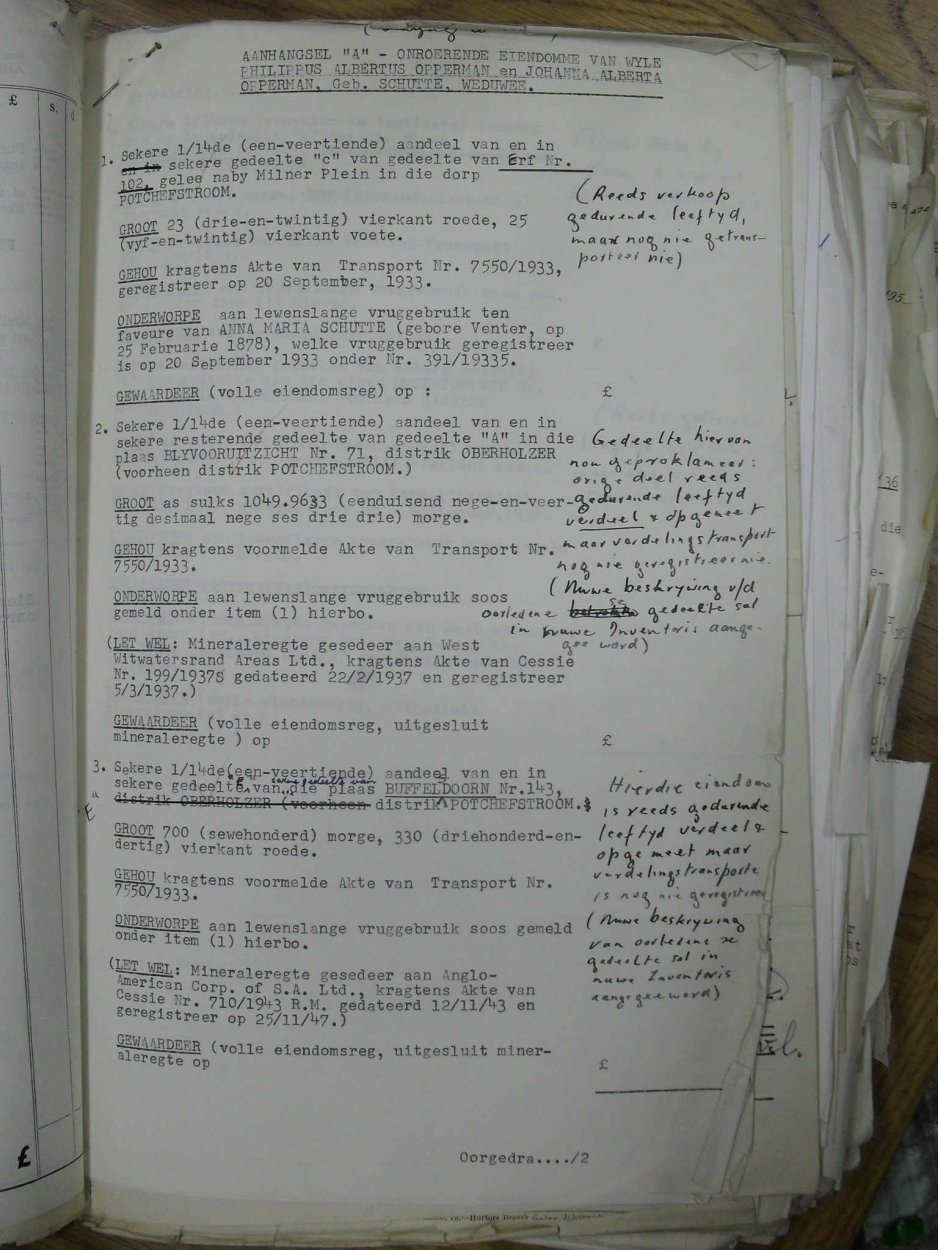 AANHANGSEL "A" - ONROERENDE EIENDOMME VAN WYLE
PHILIPPUS ALBERTUS OPPERMAN en JOHANNA ALBERTA
OPPERMAN, Geb. SCHUTTE, WEDUWEE.
1. Sekere 1/14de (een-veertiende) aandeel van en in
en in sekere gedeelte "c" van gedeelte van Erf Nr.
102, gelee naby Milner Plein in die dorp
POTCHEFSTROOM.
(Reeds verkoop
gedurende leeftyd,
maar nog nie getrans-
porteer nie)
GROOT 23 (drie-en-twintig) vierkant roede, 25
(vyf-en-twintig) vierkant voete.
GEHOU kragtens Akte van Transport Nr. 7550/1933,
geregistreer op 20 September, 1933.
ONDERWORPE aan lewenslange vruggebruik ten
faveure van ANNA MARIA SCHUTTE (gebore Venter, op
25 Februarie 1878), welke vruggebruik geregistreer
is op 20 September 1933 onder Nr. 391/19335.
GEWAARDEER (volle eiendomsreg) op : £
2. Sekere 1/14de (een-veertiende) aandeel van en in
sekere resterende gedeelte van gedeelte "A" in die
plaas BLYVOORUITZICHT Nr. 71, distrik OBERHOLZER
(voorheen distrik POTCHEFSTROOM.)
Gedeelte hiervan
nou geproklameer:
orige deel reeds
gedurende leeftyd
verdeel & opgemeet
maar verdelingstransport
nog nie geregistreer nie.
(Nuwe beskrywing v/d
oorledene se gedeelte sal
in nuwe Inventaris aange-
gee word)
GROOT as sulks 1049.9633 (eenduisend nege-en-veer-
tig desimaal nege ses drie drie) morge.
GEHOU kragtens voormelde Akte van Transport Nr.
7550/1933.
ONDERWORPE aan lewenslange vruggebruik soos
gemeld onder item (1) hierbo.
(LET WEL: Mineraleregte gesedeer aan West
Witwatersrand Areas Ltd., kragtens Akte van Cessie
Nr. 199/1937S gedateerd 22/2/1937 en geregistreer
5/3/1937.)
GEWAARDEER (volle eiendomsreg, uitgesluit
mineraleregte ) op £
3. Sekere 1/14de (een-veertiende) aandeel van en in
"E" sekere gedeelte van
sekere gedeelte van die plaas BUFFELDOORN Nr.143,
distrik OBERHOLZER (voorheen distrik POTCHEFSTROOM.
Hierdie eiendom
is reeds gedurende
leeftyd verdeel &
opgemeet maar
verdelingstransporte
is nog nie geregistreer
(Nuwe beskrywing
van oorledene se
gedeelte sal in
nuwe Inventaris
aangegee word)
GROOT 700 (sewehonderd) morge, 330 (driehonderd-en-
dertig) vierkant roede.
GEHOU kragtens voormelde Akte van Transport Nr.
7550/1933.
ONDERWORPE aan lewenslange vruggebruik soos gemeld
onder item (1) hierbo.
(LET WEL: Mineraleregte gesedeer aan Anglo-
American Corp. of S.A. Ltd., kragtens Akte van
Cessie Nr. 710/1943 R.M. gedateerd 12/11/43 en
geregistreer op 25/11/47.)
GEWAARDEER (volle eiendomsreg, uitgesluit miner-
aleregte op £
Oorgedra..../2
£ s. d.
£
/36
die